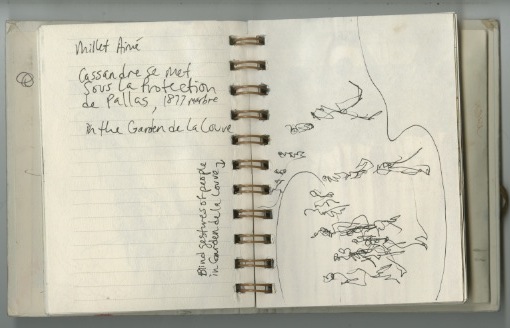 Millet Aimé
Cassandre se met
sous la Protection
de Pallas, 1877 marbre
in the Garden de la Louvre
Blind gestures of people
in Garden de la Louvre